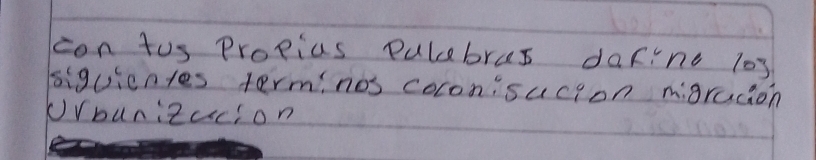 con tus Propias Palabras dafine los
siguientes terminos coconisacion migración
Urbanizacion